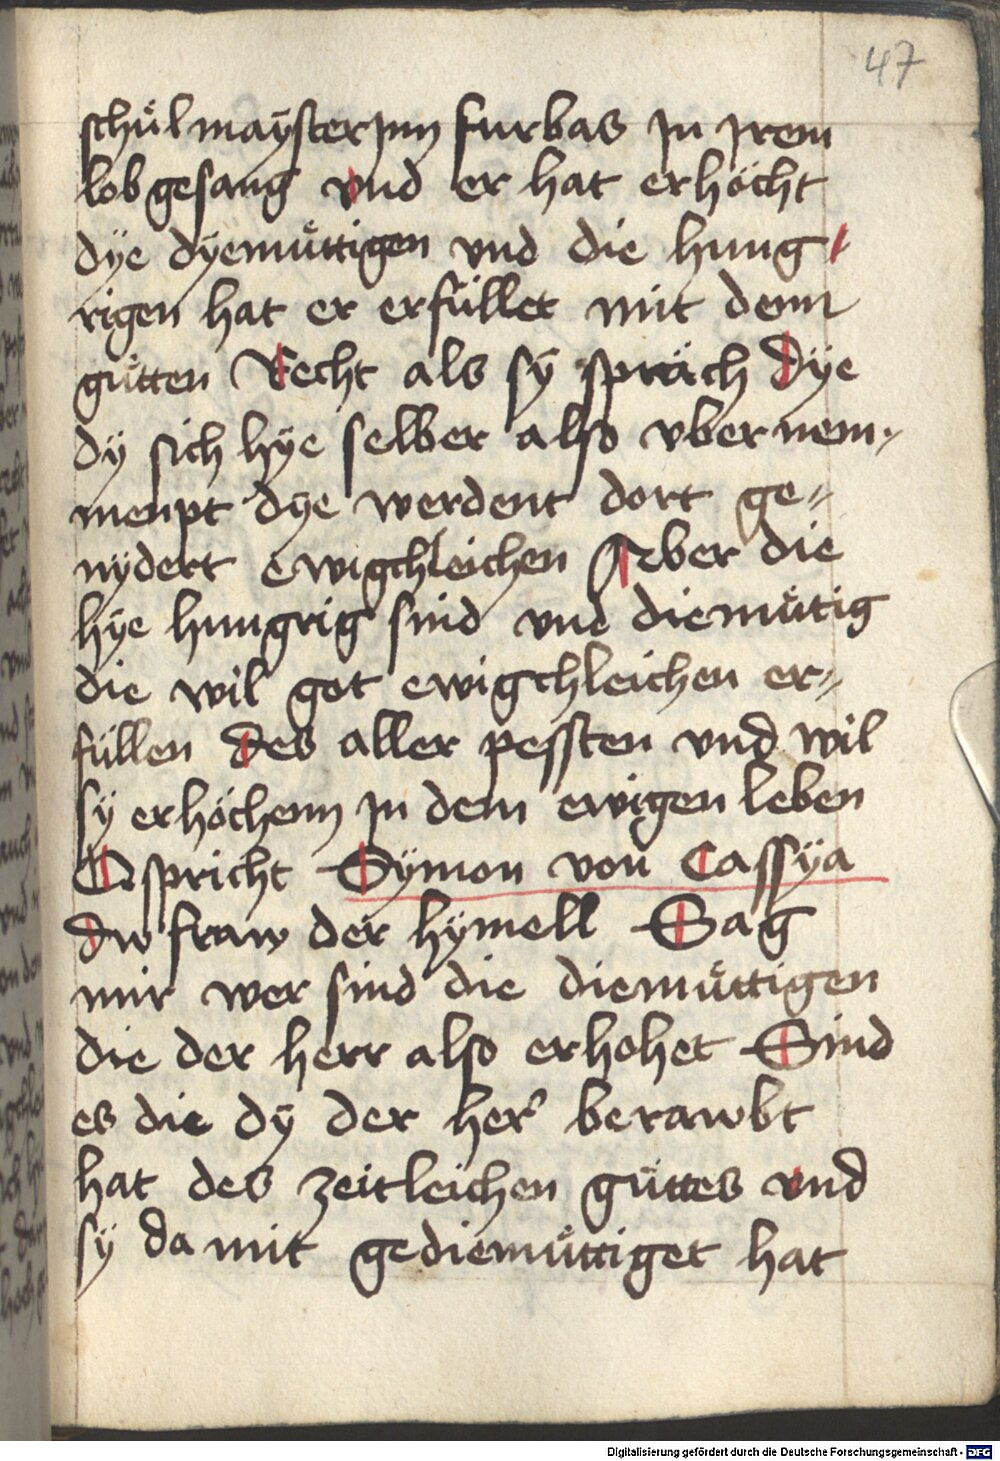 47
schuͤlmaÿsterynn furbas In jrem
lobgesang vnd er hat erhöcht
dÿe dÿemuͤttigen vnd die hung
rigen hat er erfüllet mit denn
guͤtten Recht als sÿ sprach Dÿe
dÿ sich hÿe selber also vbernem-
menpt dÿe werdent dort ge-
nÿdert ewigchleichen Aber die
hÿe hungrig sind vnd diemuͤtig
die wil got ewigchleichen er-
füllen des aller pessten vnd wil
sÿ erhöchenn In dem ewigen leben
Es spricht Sÿmon von Cassÿa
Dw fraw der hÿmell Sag
mir wer sind die diemuͤttigen
die der herr also erhohet Sind
es die dÿ der her berawbt
hat des zeitleichen guͤttes vnd
sÿ da mit gediemuͤttiget hat
Digitalisierung gefördert durch die Deutsche Forschungsgemeinschaft - DFG